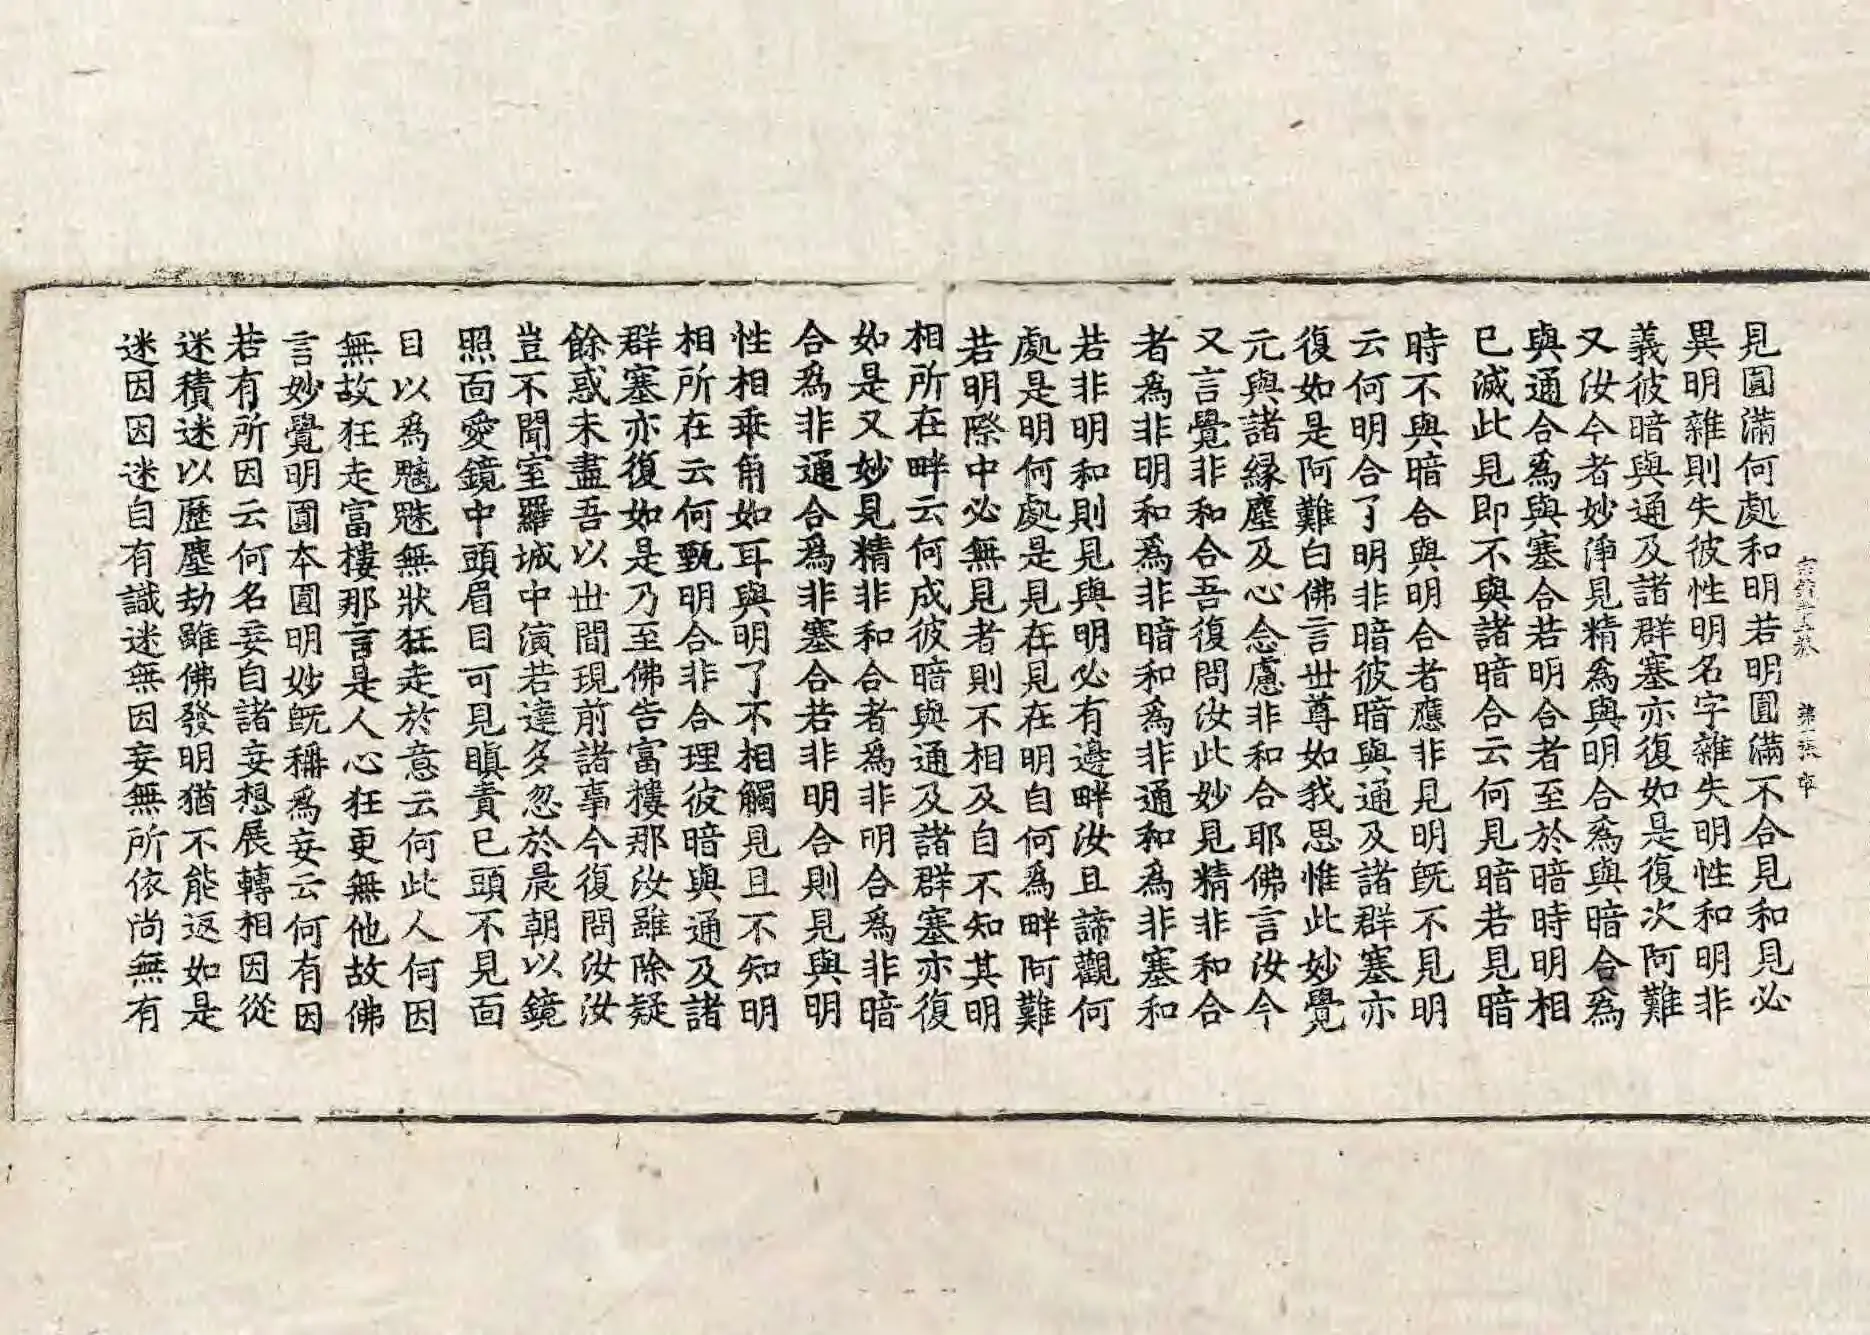 見圓滿何處和明若明圓滿不合見和見必
異明雜則失彼性明名字雜失明性和明非
義彼暗與通及諸群塞亦復如是復次阿難
又汝今者妙淨見精為與明合爲與暗合爲
與通合爲與塞合若明合者至於暗時明相
已滅此見即不與諸暗合云何見暗若見暗
時不與暗合與明合者應非見明既不見明
云何明合了明非暗彼暗與通及諸群塞亦
復如是阿難白佛言世尊如我思惟此妙覺
元與諸緣塵及心念慮非和合耶佛言汝今
又言覺非和合吾復問汝此妙見精非和合
者為非明和為非暗和為非通和為非塞和
若非明和則見與明必有邊畔汝且諦觀何
處是明何處是見在見在明自何為畔阿難
若明際中必無見者則不相及自不知其明
相所在畔云何成彼暗與通及諸群塞亦復
如是又妙見精非和合者為非明合為非暗
合爲非通合爲非塞合若非明合則見與明
性相乖角如耳與明了不相觸見且不知明
相所在云何甄明合非合理彼暗與通及諸
群塞亦復如是乃至佛告富樓那汝雖除疑
餘惑未盡吾以世間現前諸事今復問汝汝
豈不聞室羅城中演若達多忽於晨朝以鏡
照面愛鏡中頭眉目可見瞋責已頭不見面
目以爲魑魅無狀狂走於意云何此人何因
無故狂走富樓那言是人心狂更無他故佛
言妙覺明圓本圓明妙既稱爲妄云何有因
若有所因云何名妄自諸妄想展轉相因從
迷積迷以歷塵劫雖佛發明猶不能返如是
迷因因迷自有識迷無因妄無所依尚無有